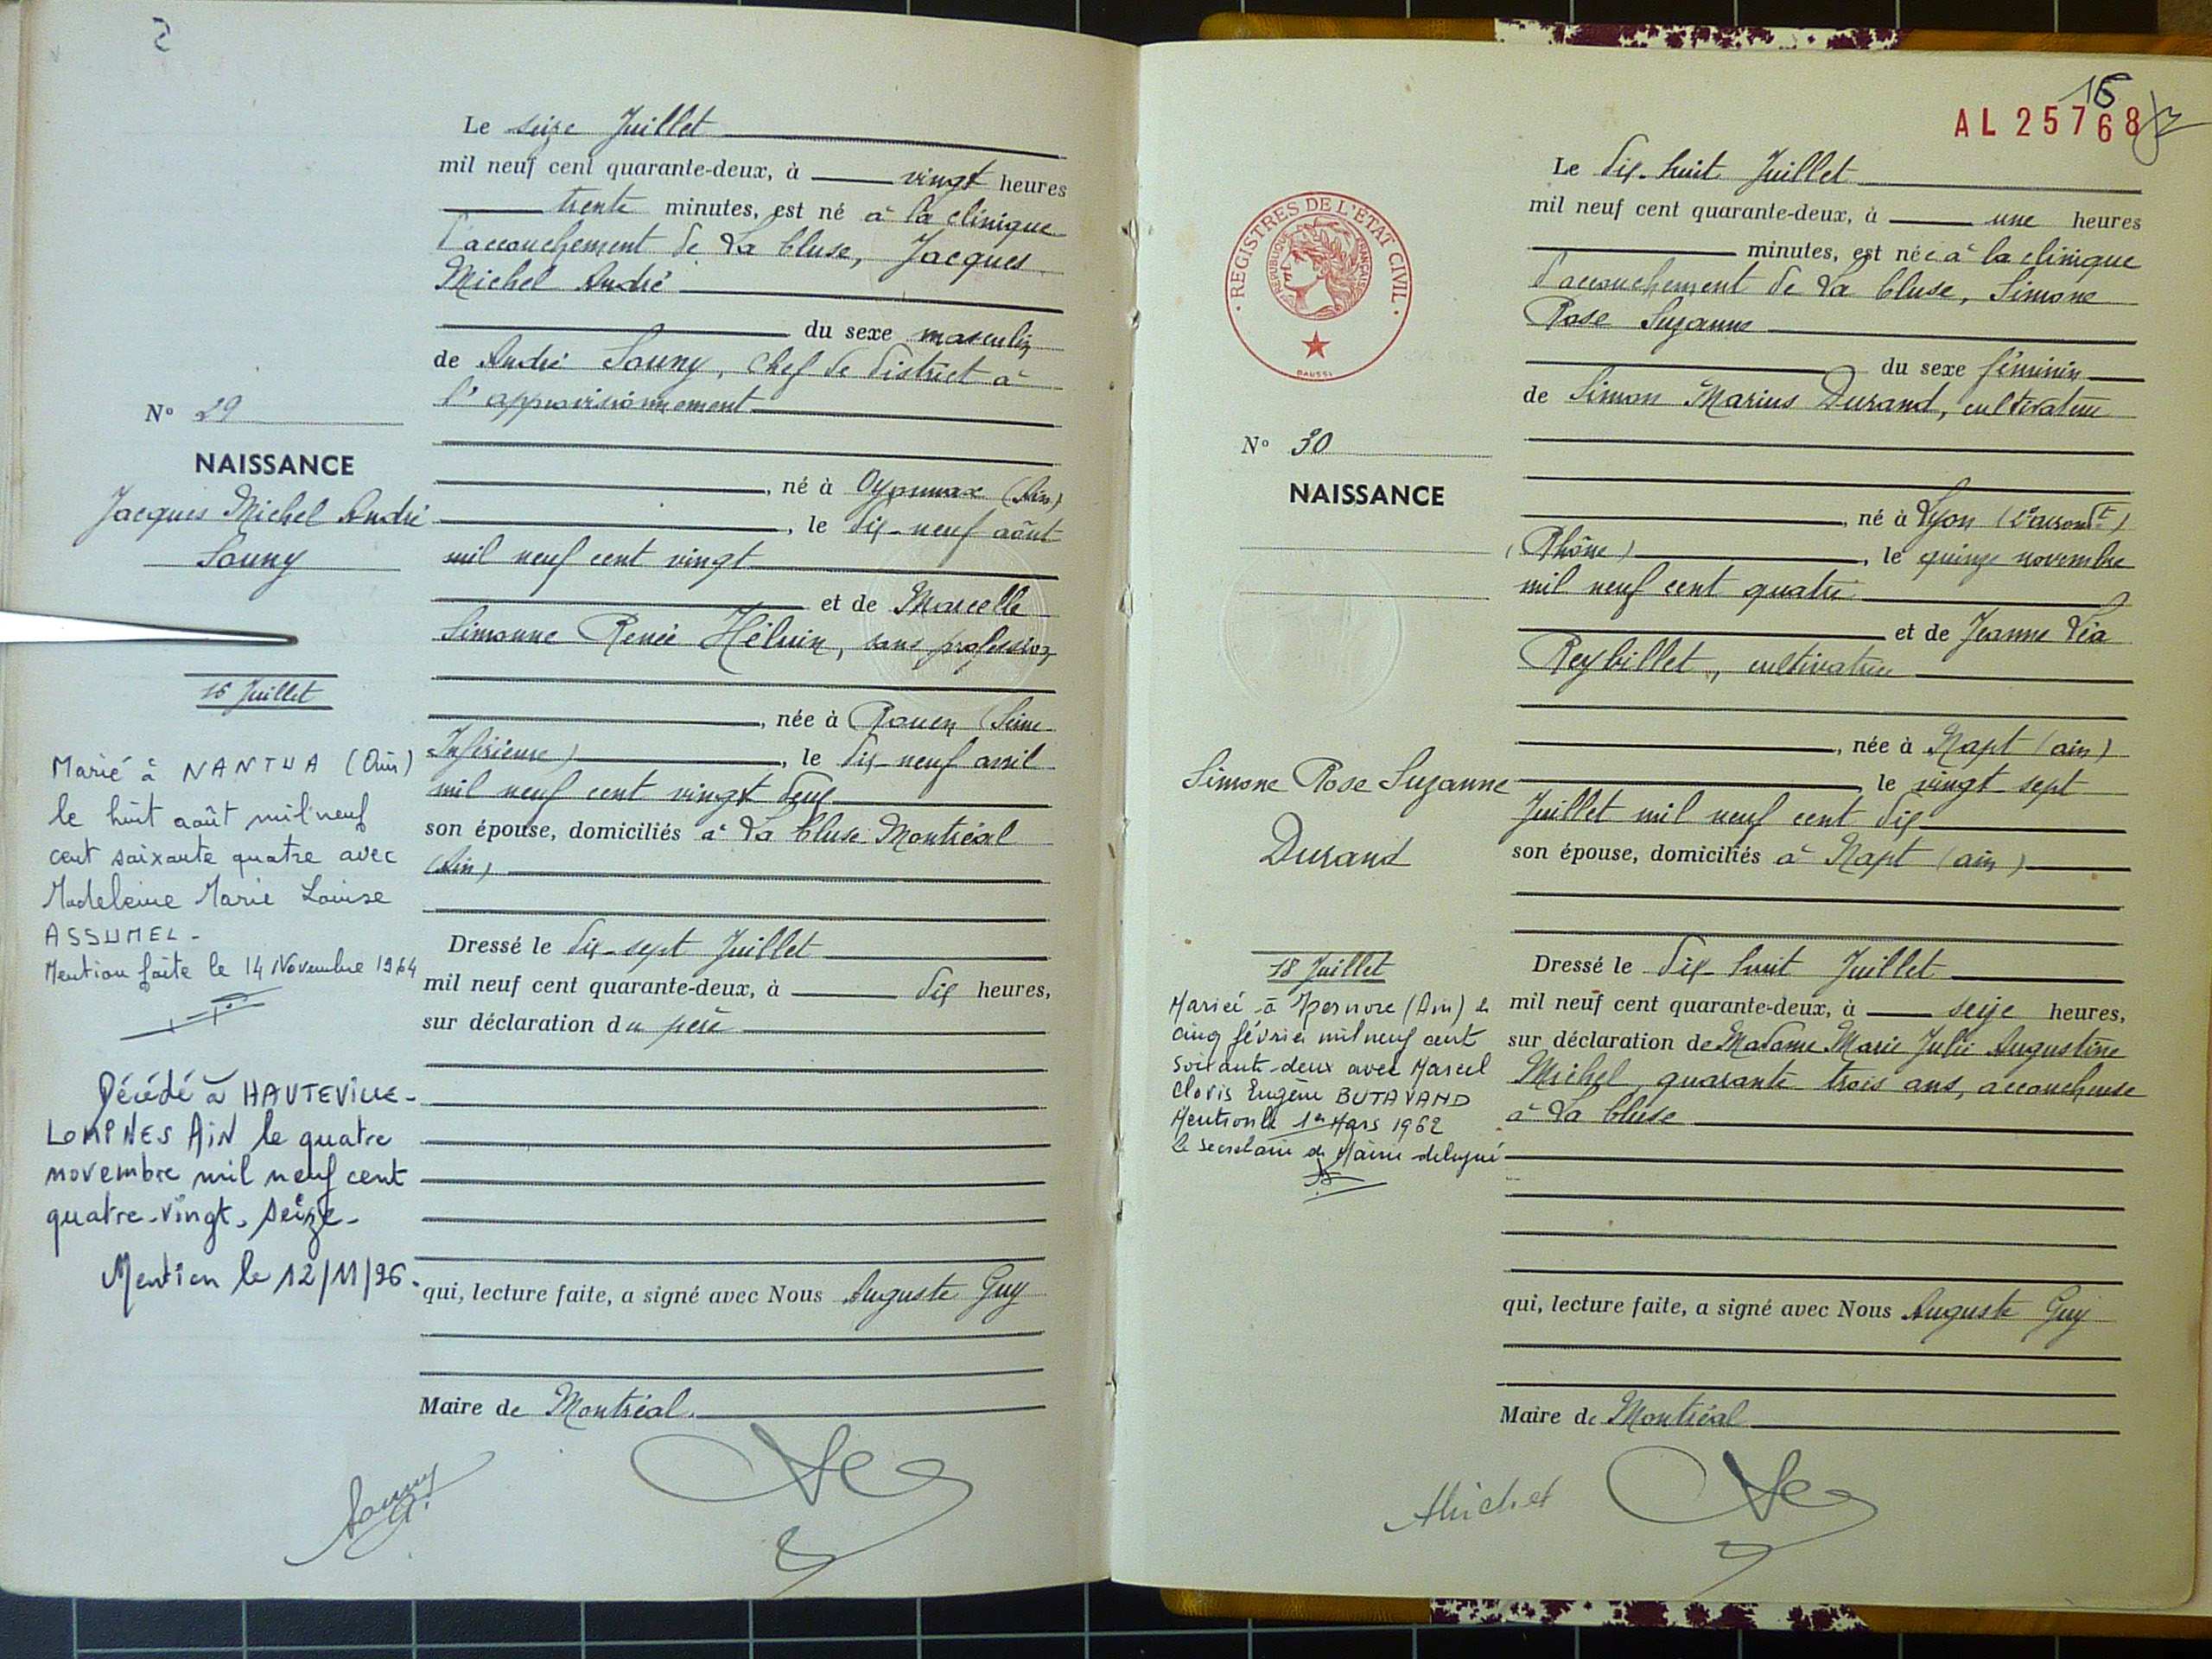 Le seize Juillet
mil neuf cent quarante-deux, à vingt heures
trente minutes, est né à la clinique
d'accouchement de La Cluse, Jacques
Michel André
du sexe masculin
de André Souny, chef de district à
l'approvisionnement
né à Oyonnax (Ain)
, le dix-neuf août
mil neuf cent vingt
et de Marcelle
Simonne Renée Héluin, sans profession
, née à Rouen (Seine
Inférieure), le dix-neuf avril
mil neuf cent vingt deux
son épouse, domiciliés à La Cluse-Montréal
(Ain)
Dressé le dix-sept Juillet
mil neuf cent quarante-deux, à dix heures,
sur déclaration du père
qui, lecture faite, a signé avec Nous Auguste Guy
Maire de Montréal
Souny
N° 29
NAISSANCE
Jacques Michel André
Souny
16 Juillet
Marié à NANTUA (Ain)
le huit août mil neuf
cent soixante quatre avec
Madeleine Marie Louise
ASSUMEL-
Mention faite le 14 Novembre 1964
Décédé à HAUTEVILLE-
LOMPNES AIN le quatre
novembre mil neuf cent
quatre-vingt-seize-
Mention le 12/11/96.
16
AL 25768
Le dix-huit Juillet
mil neuf cent quarante-deux, à une heures
minutes, est née à la clinique
d'accouchement de La Cluse, Simone
Rose Suzanne
du sexe féminin
de Simon Marius Durand, cultivateur
, né à Lyon (2e arrondt)
(Rhône), le quinze novembre
mil neuf cent quatre
et de Jeanne Léa
Reybillet, cultivatrice
, née à Napt (ain)
le vingt-sept
Juillet mil neuf cent dix
son épouse, domiciliés à Napt (ain)
Dressé le dix-huit Juillet
mil neuf cent quarante-deux, à seize heures,
sur déclaration de Madame Marie Julie Augustine
Michel, quarante trois ans, accoucheuse
à La Cluse
qui, lecture faite, a signé avec Nous Auguste Guy
Maire de Montréal
Michel
REGISTRES DE L'ETAT CIVIL
REPUBLIQUE FRANÇAISE
DAUSSI
N° 30
NAISSANCE
Simone Rose Suzanne
Durand
18 Juillet
Mariée à Izernore (Ain) le
cinq février mil neuf cent
soixante-deux avec Marcel
Clovis Eugène BUTAVAND
Mention le 1er Mars 1962
Le secrétaire de Mairie délégué